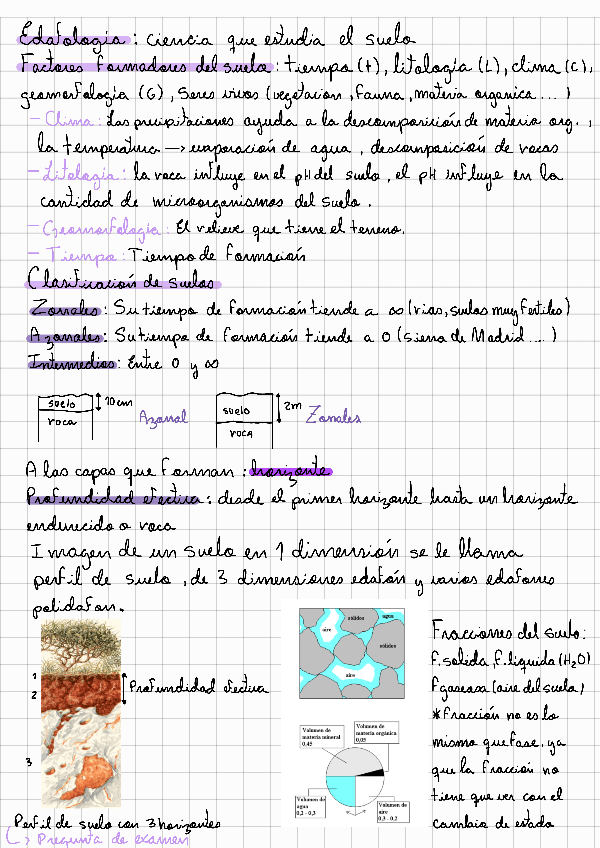 Edafologia: ciencia que estudia el suelo
Factores formadores del suelo: tiempo (t), litología (L), clima (C),
geomorfología (G), Seres vivos (vegetación, fauna, materia organica ... )
- Clima: Las precipitaciones ayuda a la descomposición de materia org.,
la temperatura -> evaporación de agua, descomposición de rocas
- Litología: la roca influye en el pH del suelo, el pH influye en la
cantidad de microorganismos del suelo.
- Geomorfología: El relieve que tiene el terreno.
- Tiempo: Tiempo de formación
Clasificación de suelos
Zonales: Su tiempo de formación tiende a ∞ (rias, suelos muy fertiles)
Azonales: Su tiempo de formación tiende a 0 (sierra de Madrid ....)
Intermedios: Entre 0 y ∞
suelo
roca
10cm
Azonal
suelo
roca
2m
Zonales
A las capas que forman: horizonte
Profundidad efectiva: desde el primer horizonte hasta un horizonte
endurecido o roca
Imagen de un suelo en 1 dimensión se le llama
perfil de suelo, de 3 dimensiones edafón y varios edafones
polidafon.
1
2
3
Profundidad efectiva
Perfil de suelo con 3 horizontes
↳ Pregunta de examen
sólidos
agua
aire
sólidos
aire
Volumen de
materia mineral
0,45
Volumen de
materia orgánica
0,05
Volumen de
agua
0,2 - 0,3
Volumen de
aire
0,3 - 0,2
Fracciones del suelo:
F. solida, F. liquida (H2O)
F gaseosa (aire del suelo)
*Fracción no es lo
mismo que fase, ya
que la fracción no
tiene que ver con el
cambio de estado